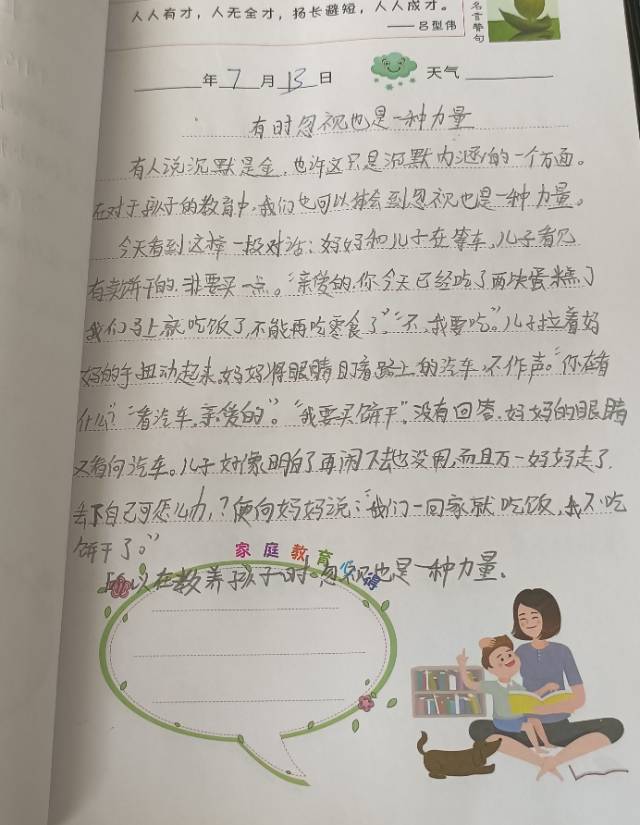 人人有才，人无全才，扬长避短，人人成才。
——吕型伟
名言警句
年7月13日 天气
有时忽视也是一种力量
有人说沉默是金，也许这只是沉默内涵的一个方面。
在对于孩子的教育中，我们也可以体会到忽视也是一种力量。
今天看到这样一段对话：妈妈和儿子在等车，儿子看见
有卖饼干的，非要买一点。“亲爱的，你今天已经吃了两块蛋糕了
我们马上就吃饭了，不能再吃零食了”“不，我要吃。”儿子拉着妈
妈的手扭动起来，妈妈将眼睛盯着路上的汽车，不作声。“你在看
什么？”“看汽车，亲爱的”。“我要买饼干”，没有回答，妈妈的眼睛
又看向汽车。儿子好像明白了再闹下去也没用，而且万一妈妈走了，
丢下自己可怎么办，？便向妈妈说：“我们一回家就吃饭，我不吃
饼干了。”
家庭教育心得
所以在教养孩子时，忽视也是一种力量.